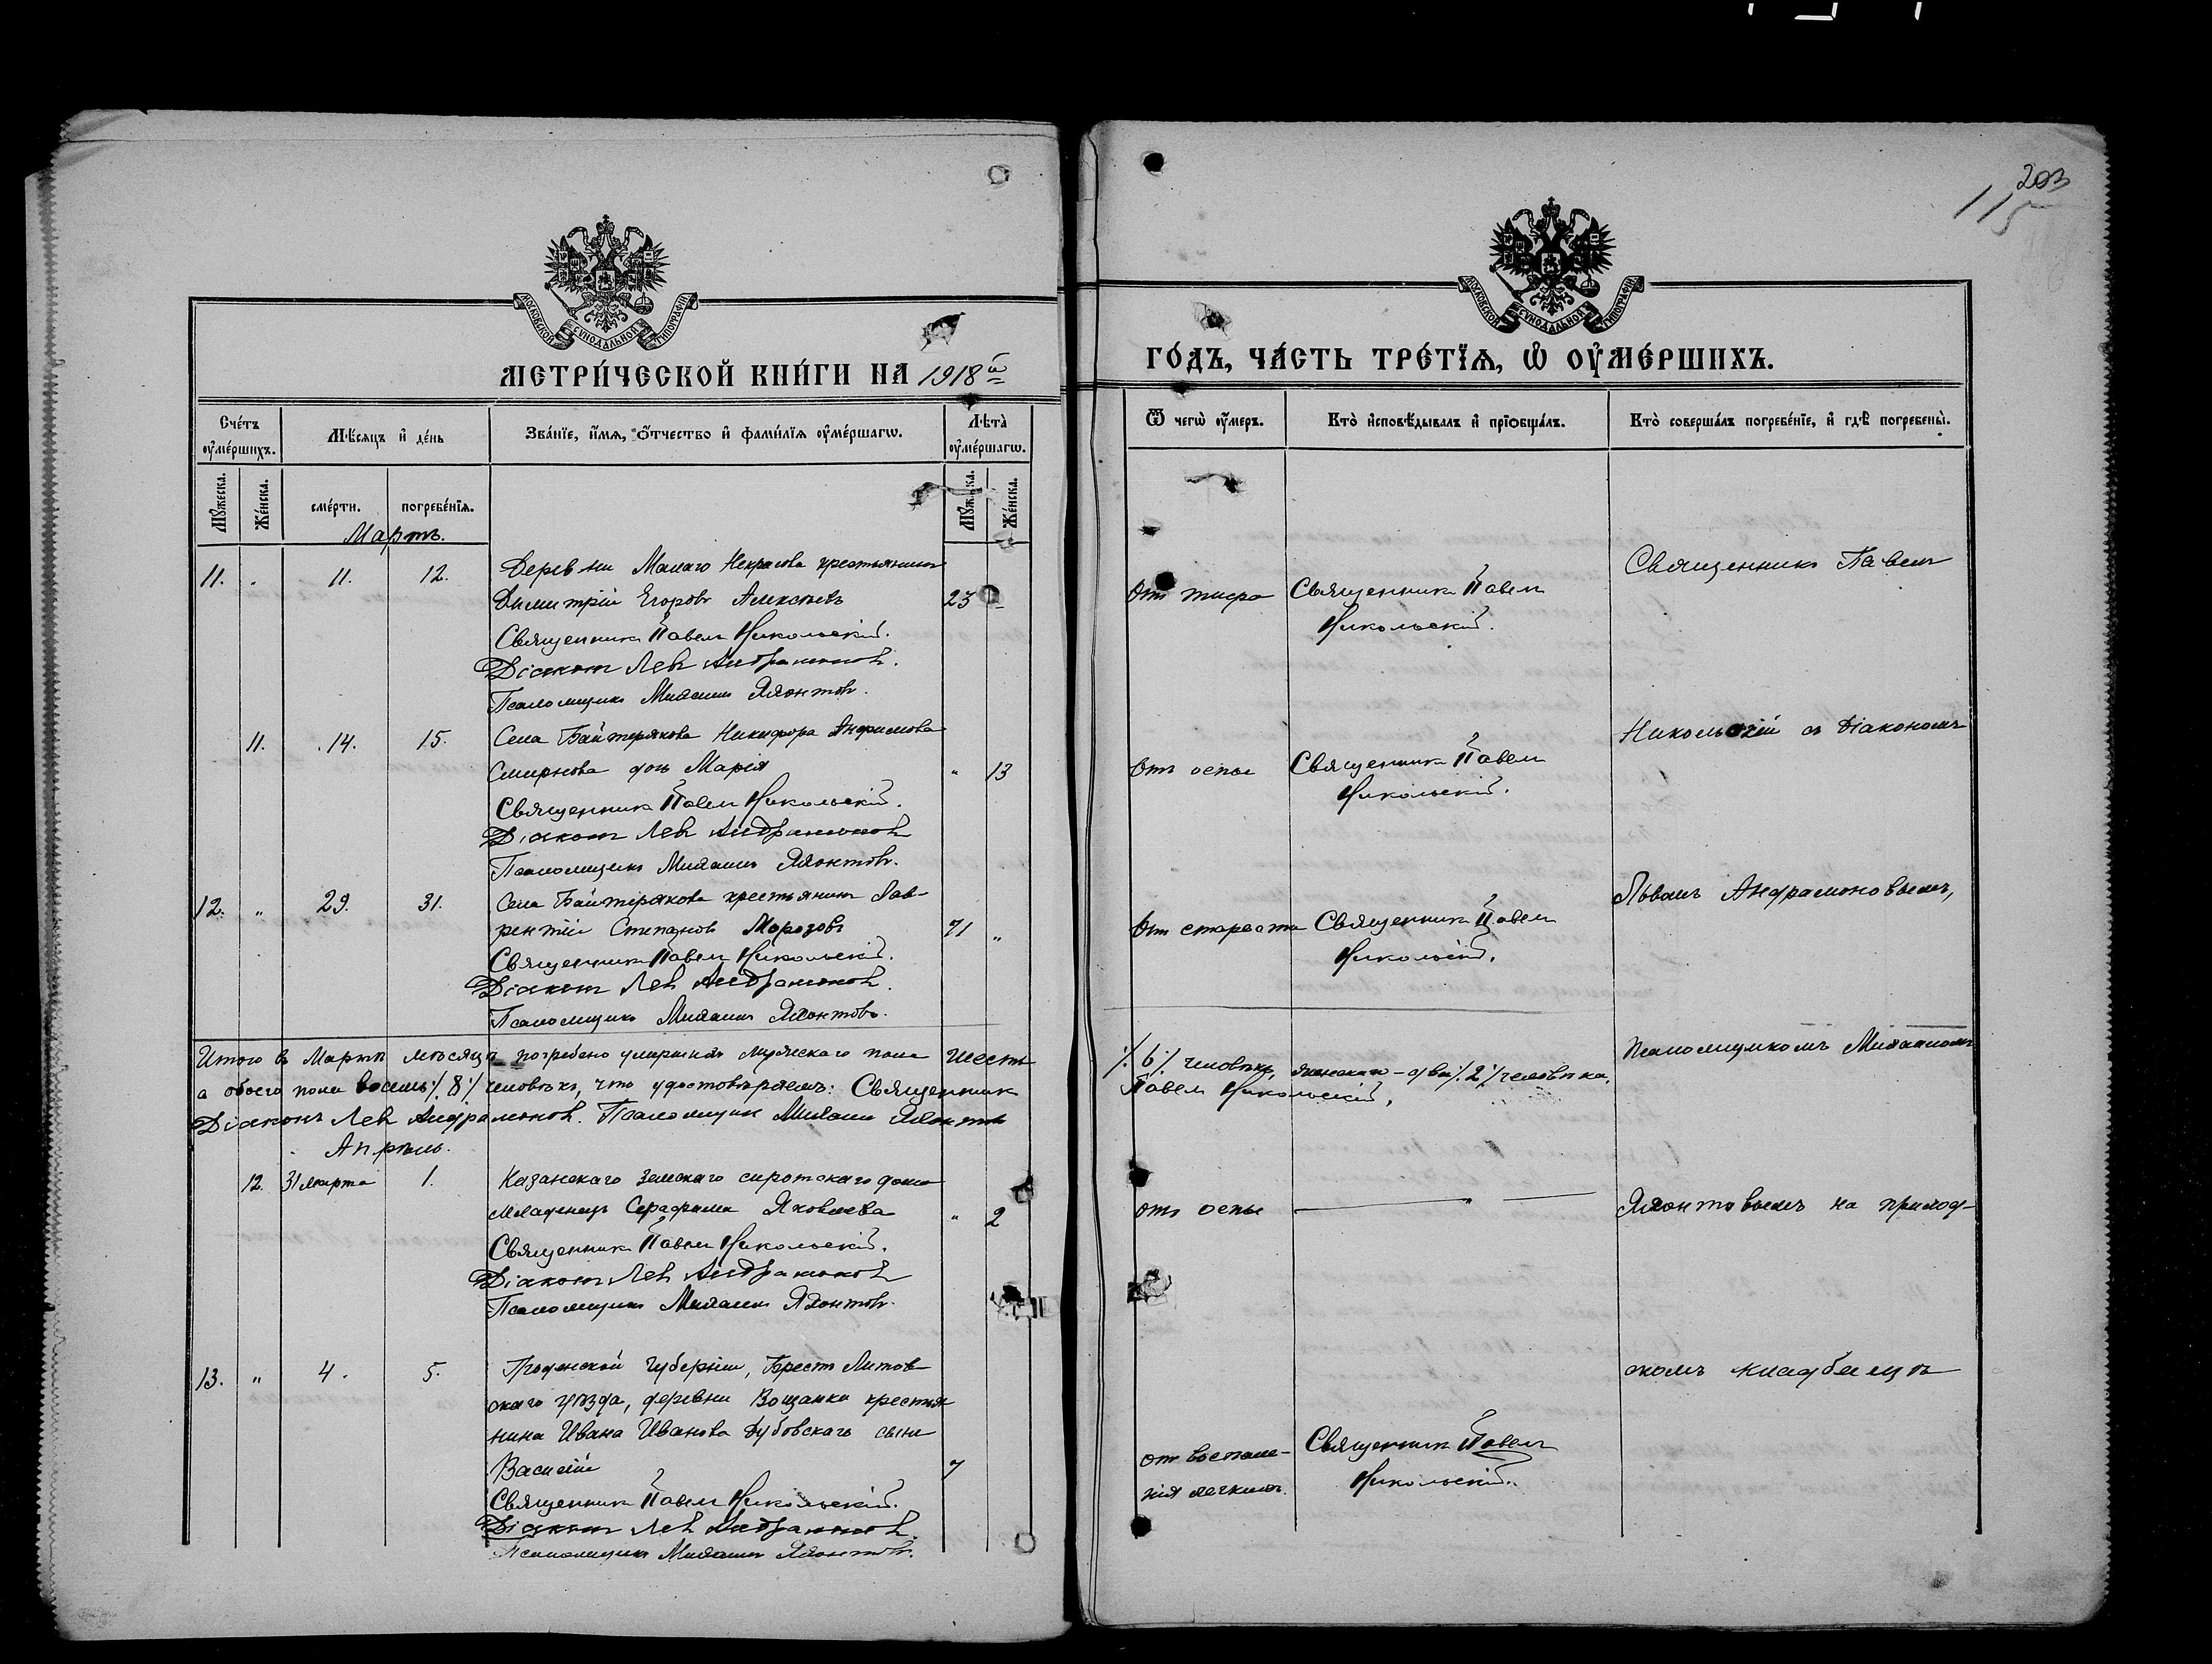 203
115
МОСКОВСКОЙ СѴНОДАЛЬНОЙ ТИПОГРАФІИ
МОСКОВСКОЙ СѴНОДАЛЬНОЙ ТИПОГРАФІИ
МЕТРИ́ЧЕСКОЙ КНИ́ГИ НА 1918й
ГО́ДЪ, ЧА́СТЬ ТРЕ́ТЇѦ, Ѡ҆ ОУ҆МЕ́РШИХЪ.
Сче́тъ оу҆ме́ршихъ.
Мѣ́сѧцъ и҆ де́нь
Зва́нїе, и҆́мѧ, ѻ҆́тчество и҆ фамі́лїѧ оу҆ме́ршагѡ.
Лѣ́та̀ оу҆ме́ршагѡ.
Ѿ чегѡ̀ оу҆́меръ.
Кто̀ и҆сповѣ́дывалъ и҆ прїѻбща́лъ.
Кто̀ соверша́лъ погребе́нїе, и҆ гдѣ̀ погребены̀.
Мꙋ́жеска.
Же́нска.
сме́рти.
погребе́нїѧ.
Мꙋ́жеска.
Же́нска.
Мартъ.
11. „ 11. 12. Деревни Малаго Некрасова крестьянинъ
Димитрій Егоровъ Алексѣевъ 23 –
Священникъ Павелъ Никольскій.
Діаконъ Левъ Андрамоновъ.
Псаломщикъ Михаилъ Яхонтовъ.
Отъ тифа
Священникъ Павелъ
Никольскій.
Священникъ Павелъ
11. 14. 15. Села Байтерякова Никифора Анфимова
Смирнова дочь Марія „ 13
Священникъ Павелъ Никольскій.
Діаконъ Левъ Андрамоновъ
Псаломщикъ Михаилъ Яхонтовъ.
Отъ оспы
Священникъ Павелъ
Никольскій.
Никольскій съ Діакономъ
12. „ 29. 31. Села Байтерякова крестьянинъ Лав-
рентій Степановъ Морозовъ 71 „
Священникъ Павелъ Никольскій.
Діаконъ Левъ Андрамоновъ.
Псаломщикъ Михаилъ Яхонтовъ.
Отъ старости
Священникъ Павелъ
Никольскій.
Львомъ Андрамоновымъ,
Итого въ Мартѣ мѣсяцѣ погребено умершихъ мужскаго пола шесть ·/. 6 ·/. человѣкъ, женскаго – два ·/. 2 ·/. человѣка,
а обоего пола восемь ·/. 8 ·/. человѣкъ, что удостовѣряемъ: Священникъ Павелъ Никольскій,
Діаконъ Левъ Андрамоновъ. Псаломщикъ Михаилъ Яхонтовъ
Псаломщикомъ Михаиломъ
Апрѣль.
12. 31 марта 1. Казанскаго Земскаго сиротскаго дома
младенецъ Серафима Яковлева „ 2
Священникъ Павелъ Никольскій.
Діаконъ Левъ Андрамоновъ
Псаломщикъ Михаилъ Яхонтовъ.
отъ оспы
— „ —
Яхонтовымъ на приход-
13. „ 4. 5. Гродненской губерніи, Брестъ Литов-
скаго уѣзда, деревни Вощанки крестья
нина Ивана Иванова Дубовскаго сынъ
Василій 7
Священникъ Павелъ Никольскій.
Діаконъ Левъ Андрамоновъ.
Псаломщикъ Михаилъ Яхонтовъ.
отъ воспале-
нія легкихъ.
Священникъ Павелъ
Никольскій.
скомъ кладбищѣ